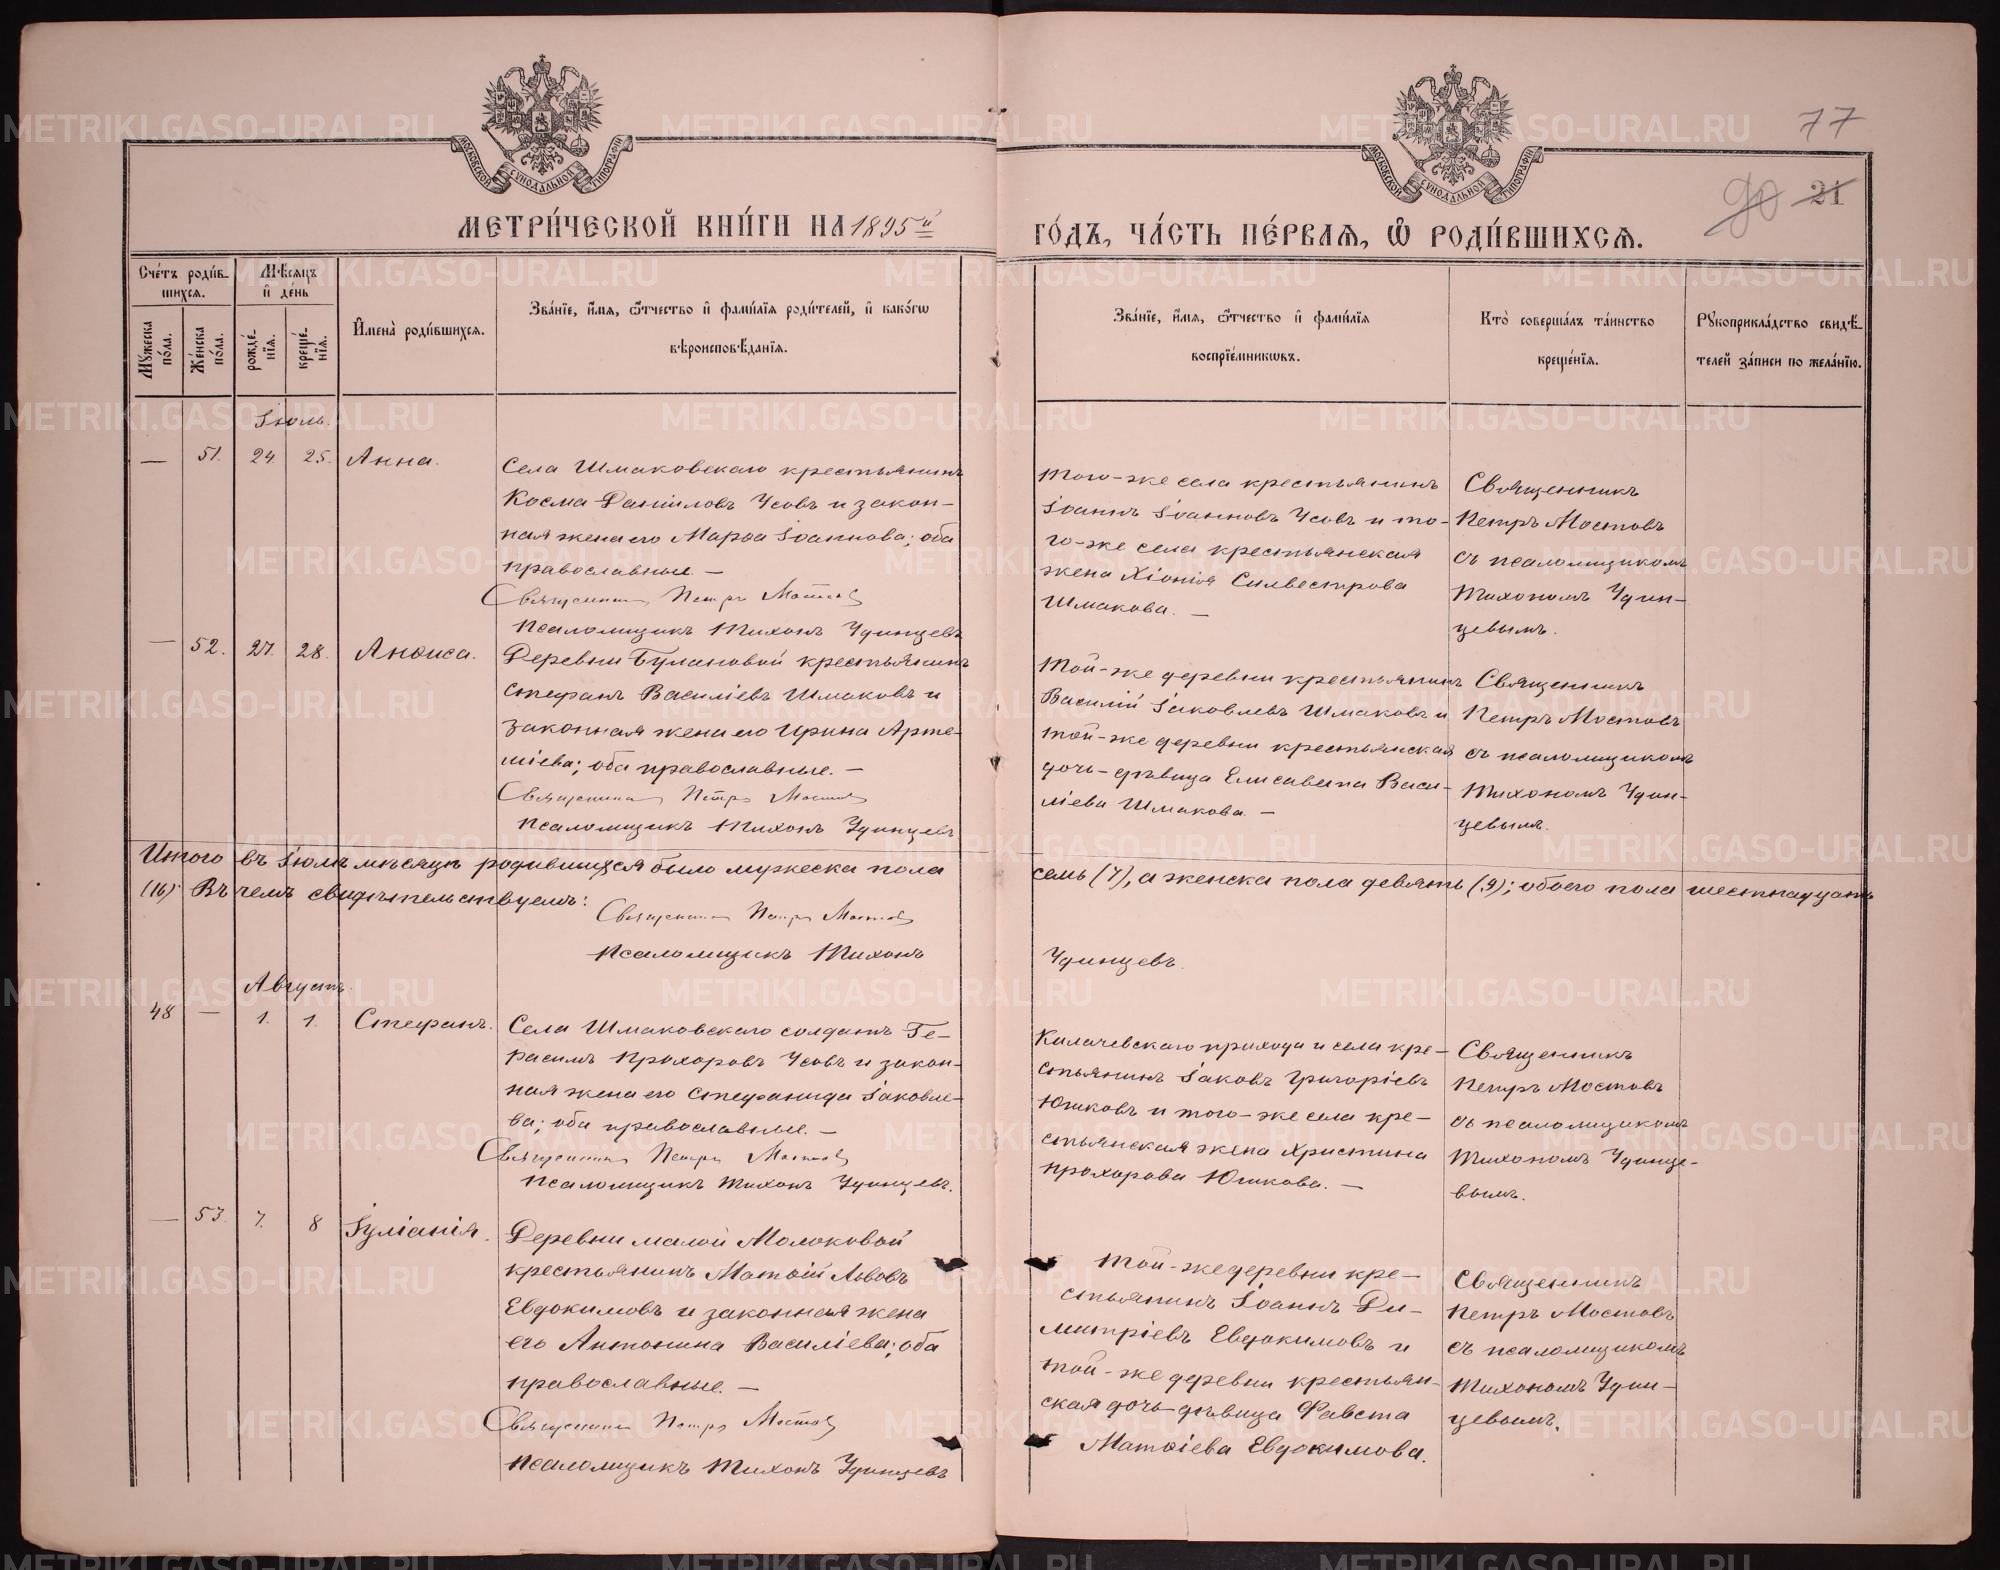 77
90 21
МОСКОВСКОЙ СѴНОДАЛЬНОЙ ТИПОГРАФІИ
МОСКОВСКОЙ СѴНОДАЛЬНОЙ ТИПОГРАФІИ
МЕТРИ́ЧЕСКОЙ КНИ́ГИ НА 1895й
ГО́ДЪ, ЧА́СТЬ ПЕ́РВАѦ, Ѡ РОДИ́ВШИХСѦ.
Сче́тъ роди́в-
шихсѧ.
Мѣ́сѧцъ
и҆ де́нь
Мꙋ́жеска
по́ла.
Же́нска
по́ла.
рожде́-
нїѧ.
креще́-
нїѧ.
И҆мена̀ роди́вшихсѧ.
Зва́нїе, и҆́мѧ, ѻ҆́тчество и҆ фами́лїѧ роди́телей, и҆ како́гѡ
вѣроисповѣ́данїѧ.
Зва́нїе, и҆́мѧ, ѻ҆́тчество и҆ фами́лїѧ
воспрїе́мникѡвъ.
Кто̀ соверша́лъ та́инство
креще́нїѧ.
Рꙋкоприкла́дство свидѣ́-
телей за́писи по жела́нїю.
Іюль.
— 51. 24. 25. Анна.
Села Шмаковскаго крестьянинъ
Косма Даніиловъ Усовъ и закон-
ная жена его Марѳа Іоаннова; оба
православные. —
Священникъ Петръ Мостовъ
Псаломщикъ Тихонъ Удинцевъ
Того-же села крестьянинъ
Іоаннъ Іоанновъ Усовъ и то-
го-же села крестьянская
жена Хіонія Сильвестрова
Шмакова. —
Священникъ
Петръ Мостовъ
съ псаломщикомъ
Тихономъ Удин-
цевымъ.
— 52. 27. 28. Анѳиса.
Деревни Булановой крестьянинъ
Стефанъ Василіевъ Шмаковъ и
законная жена его Ирина Арте-
міева; оба православные. —
Священникъ Петръ Мостовъ
Псаломщикъ Тихонъ Удинцевъ
Той-же деревни крестьянинъ
Василій Іаковлевъ Шмаковъ и
той-же деревни крестьянская
дочь-дѣвица Елисавета Васи-
ліева Шмакова. —
Священникъ
Петръ Мостовъ
съ псаломщикомъ
Тихономъ Удин-
цевымъ.
Итого въ Іюлѣ мѣсяцѣ родившихся было мужеска пола
семь (7), а женска пола девять (9); обоего пола шестнадцать
(16). Въ чемъ свидѣтельствуемъ:
Священникъ Петръ Мостовъ
Псаломщикъ Тихонъ
Удинцевъ.
Августъ.
48 — 1. 1. Стефанъ.
Села Шмаковскаго солдатъ Ге-
расимъ Прохоровъ Усовъ и закон-
ная жена его Стефанида Іаковле-
ва; оба православные. —
Священникъ Петръ Мостовъ
Псаломщикъ Тихонъ Удинцевъ.
Килачевскаго прихода и села кре-
стьянинъ Іаковъ Григоріевъ
Юшковъ и того-же села кре-
стьянская жена Христина
Прохорова Юшкова. —
Священникъ
Петръ Мостовъ
съ псаломщикомъ
Тихономъ Удинце-
вымъ.
— 53. 7. 8 Іуліанія.
Деревни малой Молоковой
крестьянинъ Матѳій Львовъ
Евдокимовъ и законная жена
его Антонина Василіева; оба
православные. —
Священникъ Петръ Мостовъ
Псаломщикъ Тихонъ Удинцевъ
Той-же деревни кре-
стьянинъ Іоаннъ Ди-
митріевъ Евдокимовъ и
той-же деревни крестьян-
ская дочь-дѣвица Фавста
Матѳіева Евдокимова.
Священникъ
Петръ Мостовъ
съ псаломщикомъ
Тихономъ Удин-
цевымъ.
METRIKI.GASO-URAL.RU